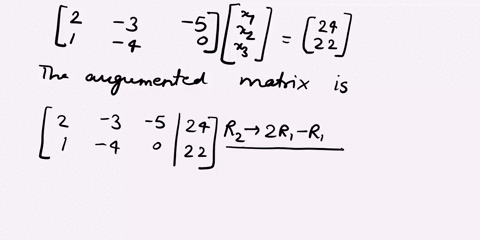 [2 -3 -5
1 -4 0] [x1
x2
x3] = [24
22]
The augumented matrix is
[2 -3 -5 | 24
1 -4 0 | 22] R2→2R1-R1